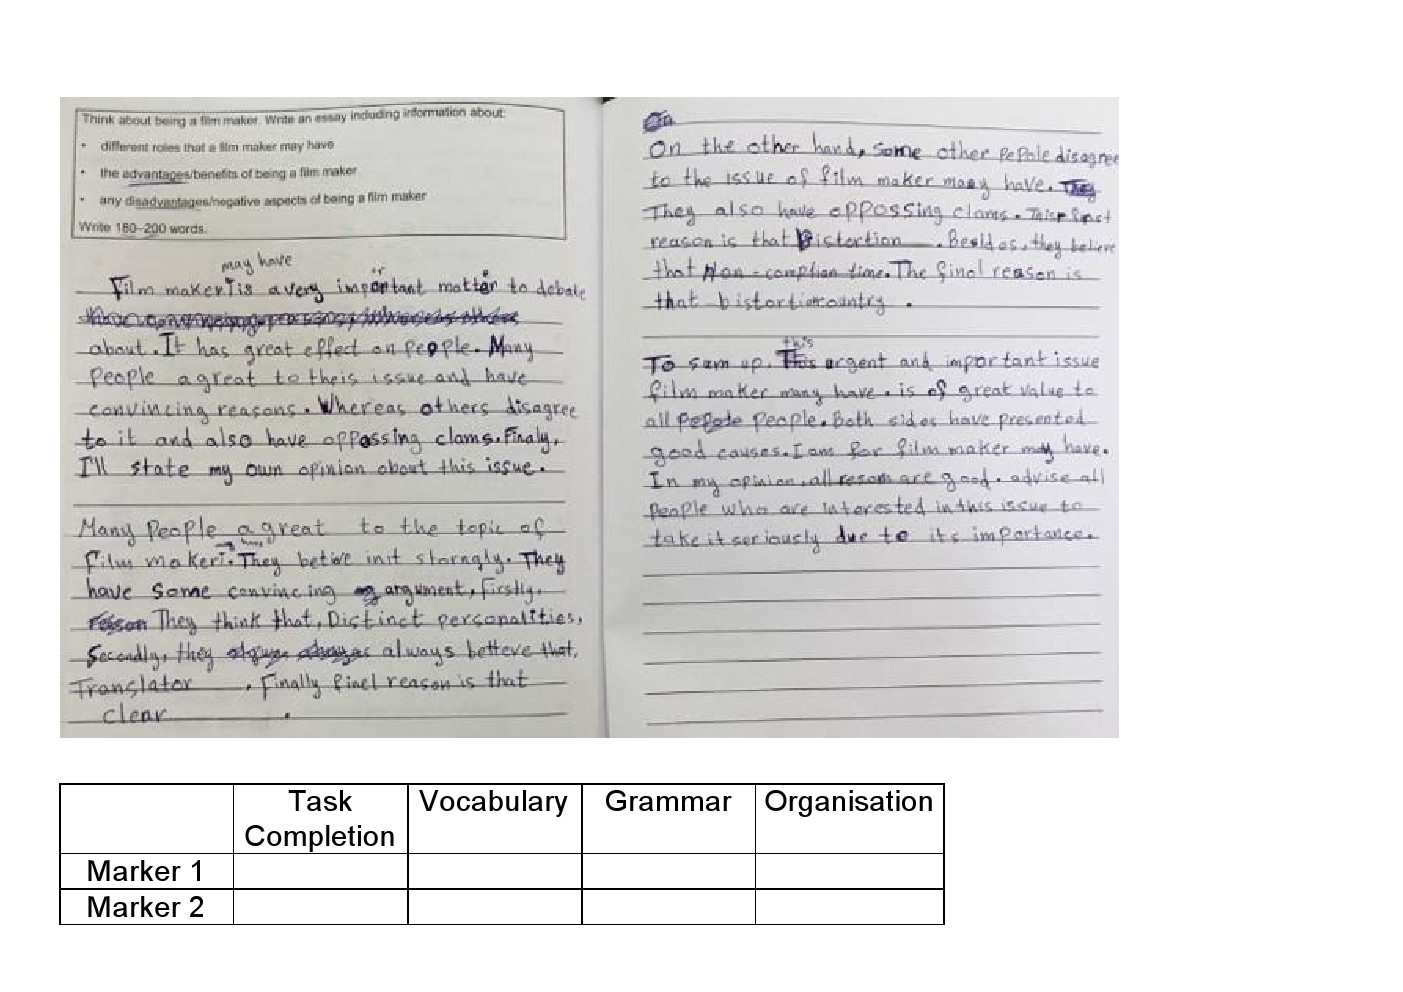 Think about being a film maker. Write an essay including information about:
• different roles that a film maker may have
• the advantages/benefits of being a film maker
• any disadvantages/negative aspects of being a film maker
Write 180–200 words.
may have
Film maker is a very important matter to debate
about. It has great effect on people. Many
People agreat to theis issue and have
convincing reasons. Whereas others disagree
to it and also have oppossing clams. Finaly,
I'll state my own opinion about this issue.
Many People agreat to the topic of
film maker. They init storngly. They
have some convincing argument, firstly,
They think that, Distinct personalities,
Secondly, they always betteve that,
Translator . Finally finel reason is that
clear .
On the other hand, some other disagree
to the issue of film maker may have.
They also have oppossing clams. first
reason is that Distortion . Besides, they believe
that Non-comption time. The final reason is
that bistortion country .
To sum up. this urgent and important issue
film maker many have. is of great value to
all People. Both sides have presented
good causes. I am for film maker may have.
In my opinion, all resom are good. advise all
people who are interested in this issue to
take it seriously due to its importance.
Task Completion Vocabulary Grammar Organisation
Marker 1
Marker 2